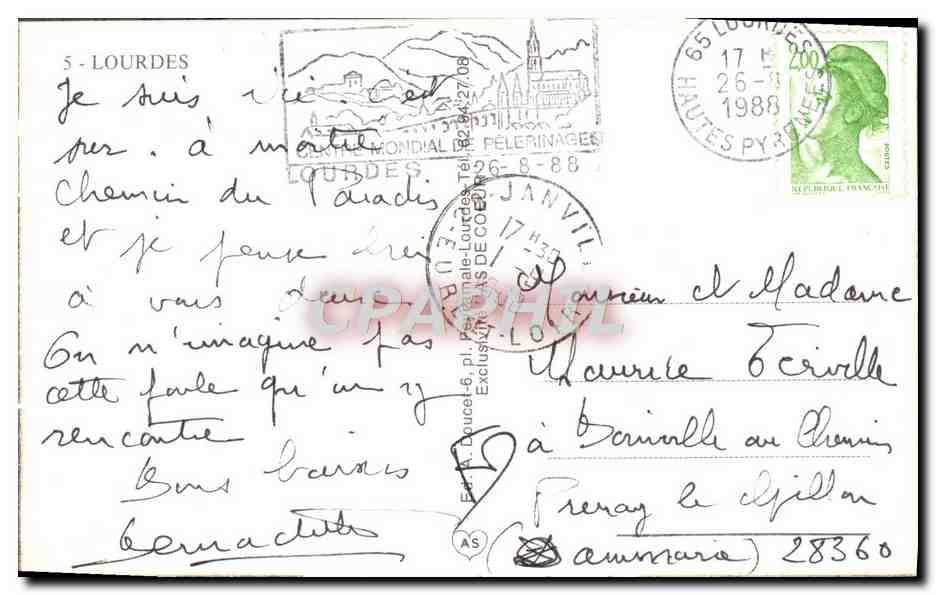 5 - LOURDES
Je suis ici. c'est
sur. à moitié
chemin du Paradis
et je pense bien
à vous deux.
On n'imagine pas
cette foule qu'on y
rencontre
Bons baisers
Bernadette
CENTRE MONDIAL DE PÈLERINAGES
LOURDES 26-8-88
65 LOURDES
17 H
26-8
1988
HAUTES PYRENEES
2,00
REPUBLIQUE FRANÇAISE
JANVIL
17 H 30
EURE-ET-LOIR
Ed. A. Doucet-6, pl. Peyramale-Lourdes-Tél. 62.94.27.08
Exclusivité AS DE COEUR
CPAPHIL
Monsieur et Madame
Maurice
à au Chemin
Prunay le Gillon
(ammaria) 28360
AS